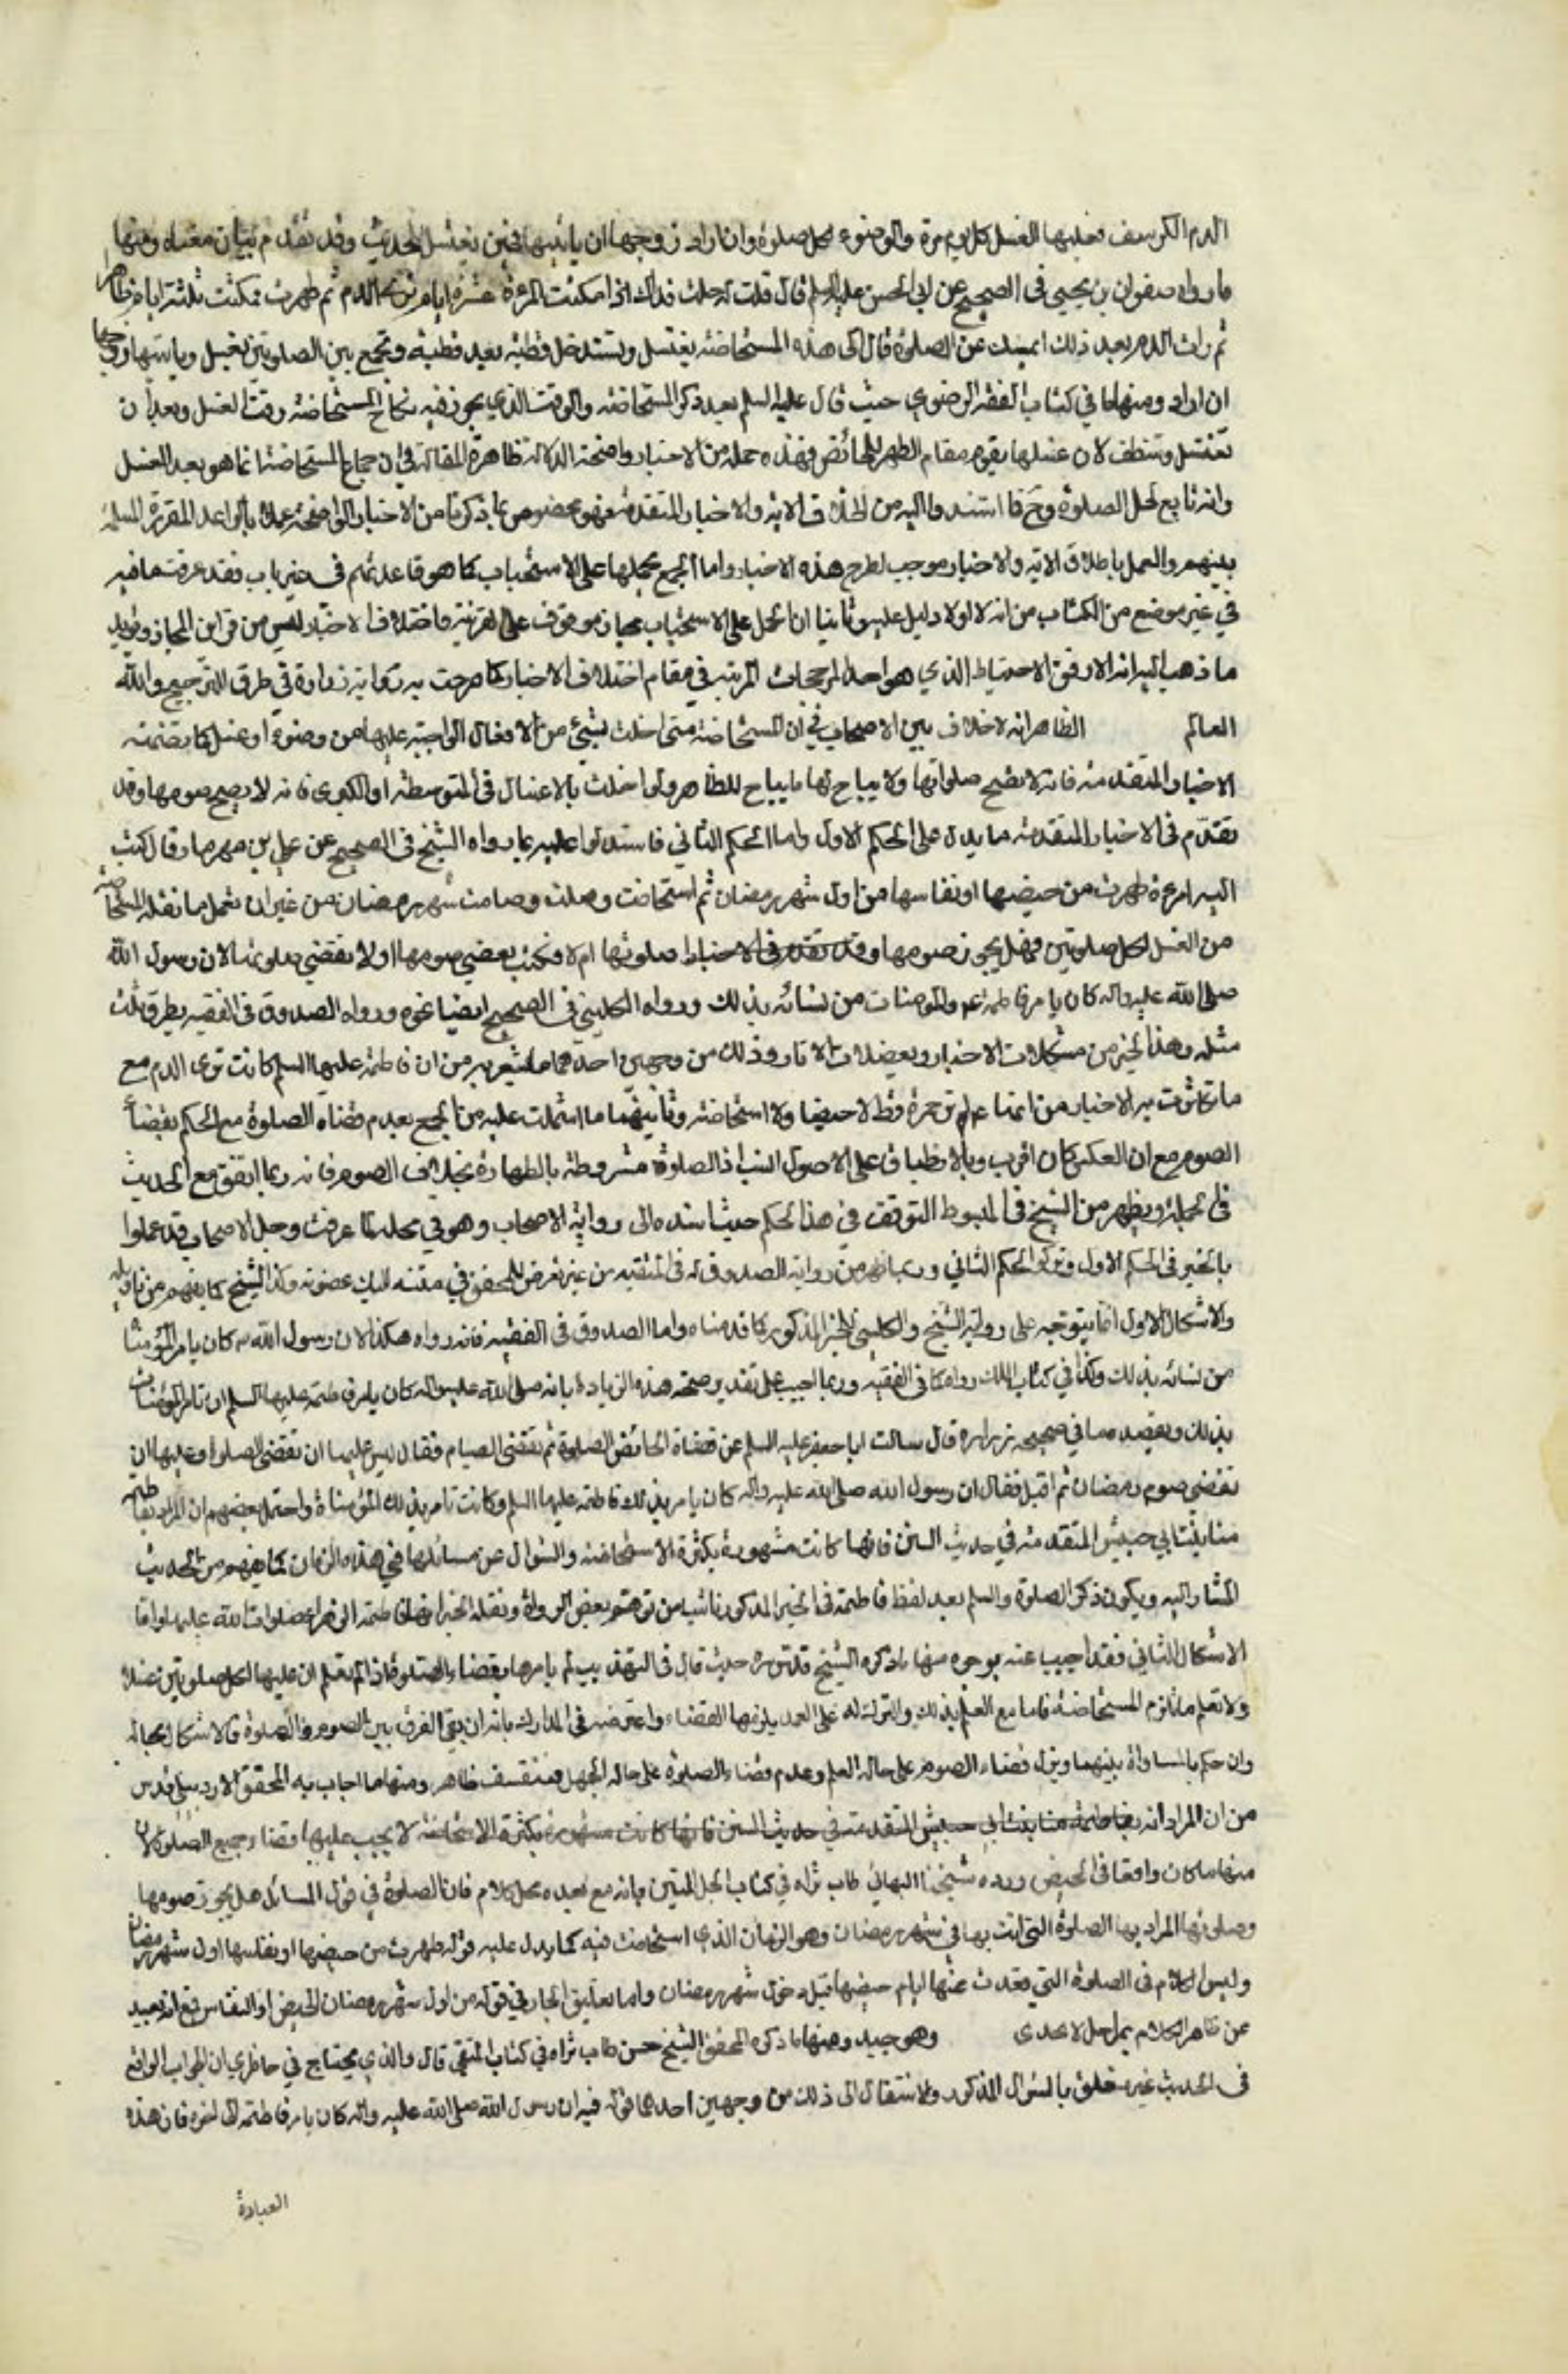 الدم الكرسف فعليها الغسل كل يوم مرة والوضوء لكل صلوة وان اراد زوجها ان ياتيها فحين يغتسل الحديث وقد تقدم بيان معناه ومنها
ما رواه صفوان بن يحيى في الصحيح عن ابي الحسن عليه السلم قال قلت له جعلت فداك اذا مكثت المرءة عشرة ايام ترى الدم ثم طهرت فمكثت ثلثة ايام طاهر
ثم رات الدم بعد ذلك اتمسك عن الصلوة قال لا هذه المستحاضة يغتسل وتستدخل قطنة بعد قطنة وتجمع بين الصلوتين بغسل وياتيها زوجها
ان اراد ومنها ما في كتاب الفقه الرضوي حيث قال عليه السلم بعد ذكر المستحاضة والوقت الذي يجوز فيه نكاح المستحاضة وقت الغسل وبعد ان
تغتسل وتنظف لان غسلها يقوم مقام الطهر للحائض فهذه جملة من الاخبار واضحة الدلالة ظاهرة المقالة في ان جماع المستحاضة انما هو بعد الغسل
وانه تابع لحل الصلوة وح فما استندوا اليه من اطلاق الاية والاخبار المتقدمة فهو مخصوص بما ذكرنا من الاخبار الواضحة عملا بالقواعد المقررة المسلمة
بينهم والعمل باطلاق الاية والاخبار موجب لطرح هذه الاخبار واما الجمع بحملها على الاستحباب كما هو قاعدتهم في غير باب فقد عرفت ما فيه
في غير موضع من الكتاب من انه لا اولا دليل عليه وثانيا ان الحمل على الاستحباب مجاز موقوف على القرينة واختلاف الاخبار ليس من قراين المجاز ويؤيد
ما ذهب اليه انه الاوفق الاحتياط الذي هو احد المرجحات المرتبة في مقام اختلاف الاخبار كما صرحت به رواية زرارة في طرق الترجيح والله
العالم الظاهر انه لا خلاف بين الاصحاب في ان المستحاضة متى اخلت بشئ من الافعال الواجبة عليها من وضوء او غسل كما تضمنته
الاخبار المتقدمة فانه لا تصح صلوتها ولا يباح لها ما يباح للطاهر ولو اخلت بالاغسال في المتوسطة او الكبرى فانه لا يصح صومها وقد
تقدم في الاخبار المتقدمة ما يدل على الحكم الاول واما الحكم الثاني فاستدلوا عليه بما رواه الشيخ في الصحيح عن علي بن مهزيار قال كتبت
اليه امرءة طهرت من حيضها او نفاسها من اول شهر رمضان ثم استحاضت وصلت وصامت شهر رمضان من غير ان تعمل ما تفعله المستحاضة
من الغسل لكل صلوتين فهل يجوز صومها وقد تقدم في الاخبار وصلوتها ام لا فكتب يقضي صومها اولا تقضي صلوتها لان رسول الله
صلى الله عليه واله كان يامر فاطمة ع والمومنات من نسائه بذلك ورواه الكليني في الصحيح ايضا نحوه ورواه الصدوق في الفقيه بطرق ثلث
مثله وهذا الخبر من مشكلات الاخبار ومعضلات الاثار وذلك من وجهين احدهما ما يشعر به من ان فاطمة عليها السلم كانت ترى الدم مع
ما تكاثرت به الاخبار من انها ع لم تر حمرة قط لا حيضا ولا استحاضة وثانيهما ما اشتملت عليه من الجمع بعدم قضاء الصلوة مع الحكم بقضاء
الصوم مع ان العكس كان اقرب وبالانطباق على الاصول انسب اذ الصلوة مشروطة بالطهارة بخلاف الصوم فانه ربما اتفق مع الحديث
في الجملة ويظهر من الشيخ في المبسوط التوقف في هذا الحكم حيث اسنده الى رواية الاصحاب وهو في محله لما عرفت وجل الاصحاب قد عملوا
بالخبر في الحكم الاول وتركوا الحكم الثاني
والاشكال الاول انما يتوجه على رواية الشيخ والكليني للخبر المذكور كما قدمناه واما الصدوق في الفقيه فانه رواه هكذا لان رسول الله ص كان يامر المؤمنات
من نسائه بذلك وكذا في كتاب العلل رواه كما في الفقيه وربما اجيب على تقدير صحة هذه الزيادة بانه صلى الله عليه واله كان يامر فاطمة عليها السلم ان تامر المؤمنات
بذلك ويعضده ما في صحيحة زرارة قال سالت ابا جعفر عليه السلم عن قضاء الحائض الصلوة ثم تقضي الصيام فقال ليس عليها ان تقضي الصلوة وعليها ان
تقضي صوم رمضان ثم اقبل فقال ان رسول الله صلى الله عليه واله كان يامر بذلك فاطمة عليها السلم وكانت تامر بذلك المؤمناة واحتمل بعضهم ان المراد بفاطمة
هنا بنت ابي حبيش المتقدمة في حديث السنن فانها كانت مشهورة بكثرة الاستحاضة والسؤال عن مسائلها في هذه الزمان كما يفهم من الحديث
المشار اليه ويكون ذكر الصلوة والسلم بعد لفظ فاطمة في الخبر المذكور ناشيا من توهم بعض الرواة ونقله الخبر انها فاطمة الزهراء صلوات الله عليها واما
الاشكال الثاني فقد اجيب عنه بوجوه منها ما ذكره الشيخ قدس سره حيث قال في التهذيب لم يامرها بقضاء الصلوة اذا لم تعلم ان عليها لكل صلوتين غسلا
ولا تعلم ما تلزم المستحاضة فاما مع العلم بذلك والترك له على العمد يلزمها القضاء واعترضه في المدارك بانه ان بقي الفرق بين الصوم والصلوة فالاشكال بحاله
وان حكم بالمساواة بينهما ونزل قضاء الصوم على حالة العلم وعدم قضاء الصلوة على حالة الجهل فتعسف ظاهر ومنها ما اجاب به المحقق الاردبيلي قدس
من ان المراد انه بفاطمة هنا بنت ابي حبيش المتقدمة في حديث السنن فانها كانت مشهورة بكثرة الاستحاضة لا يجب عليها قضاء جميع الصلوة لان
منها ما كان واقعا في الحيض ورده شيخنا البهائي طاب ثراه في كتاب الحبل المتين بانه مع بعده محل كلام فان الصلوة في قول السائل هل يجوز صومها
وصلوتها المراد بها الصلوة التي اتت بها في شهر رمضان وهو الزمان الذي استحاضت فيه كما يدل عليه قوله طهرت من حيضها او نفاسها اول شهر رمضان
وليس الكلام في الصلوة التي قعدت عنها ايام حيضها قبل دخول شهر رمضان واما تعليق الجار في قوله من اول شهر رمضان بالحيض او النفاس فمع انه بعيد
عن ظاهر الكلام بمراحل لا يجدي وهو جيد ومنها ما ذكره المحقق الشيخ حسن طاب ثراه في كتاب المنتقى قال والذي يختلج في خاطري ان الجواب الواقع
في الحديث غير متعلق بالسؤال المذكور والانتقال الى ذلك من وجهين احدهما قوله فيه ان رسول الله صلى الله عليه واله كان يامر فاطمة الى اخره فان هذه
العبارة